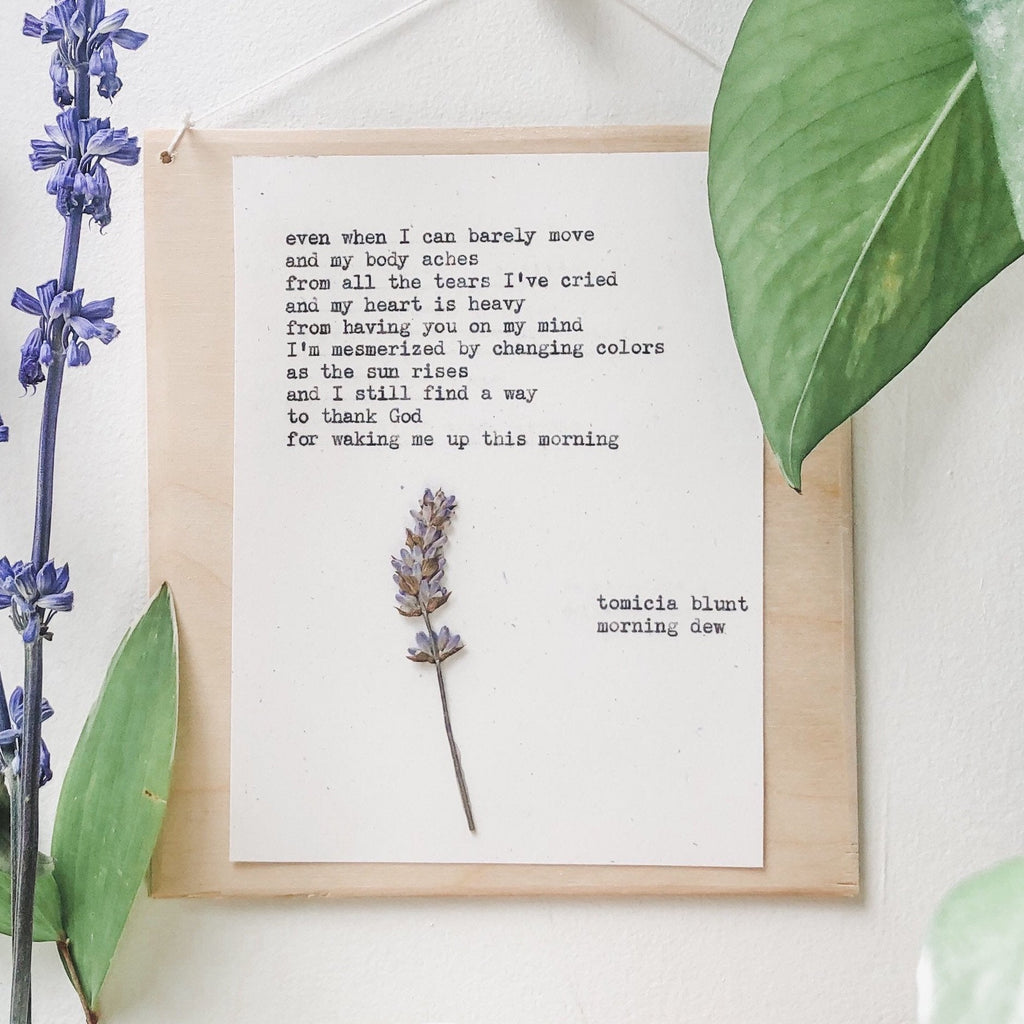 even when I can barely move
and my body aches
from all the tears I've cried
and my heart is heavy
from having you on my mind
I'm mesmerized by changing colors
as the sun rises
and I still find a way
to thank God
for waking me up this morning
tomicia blunt
morning dew